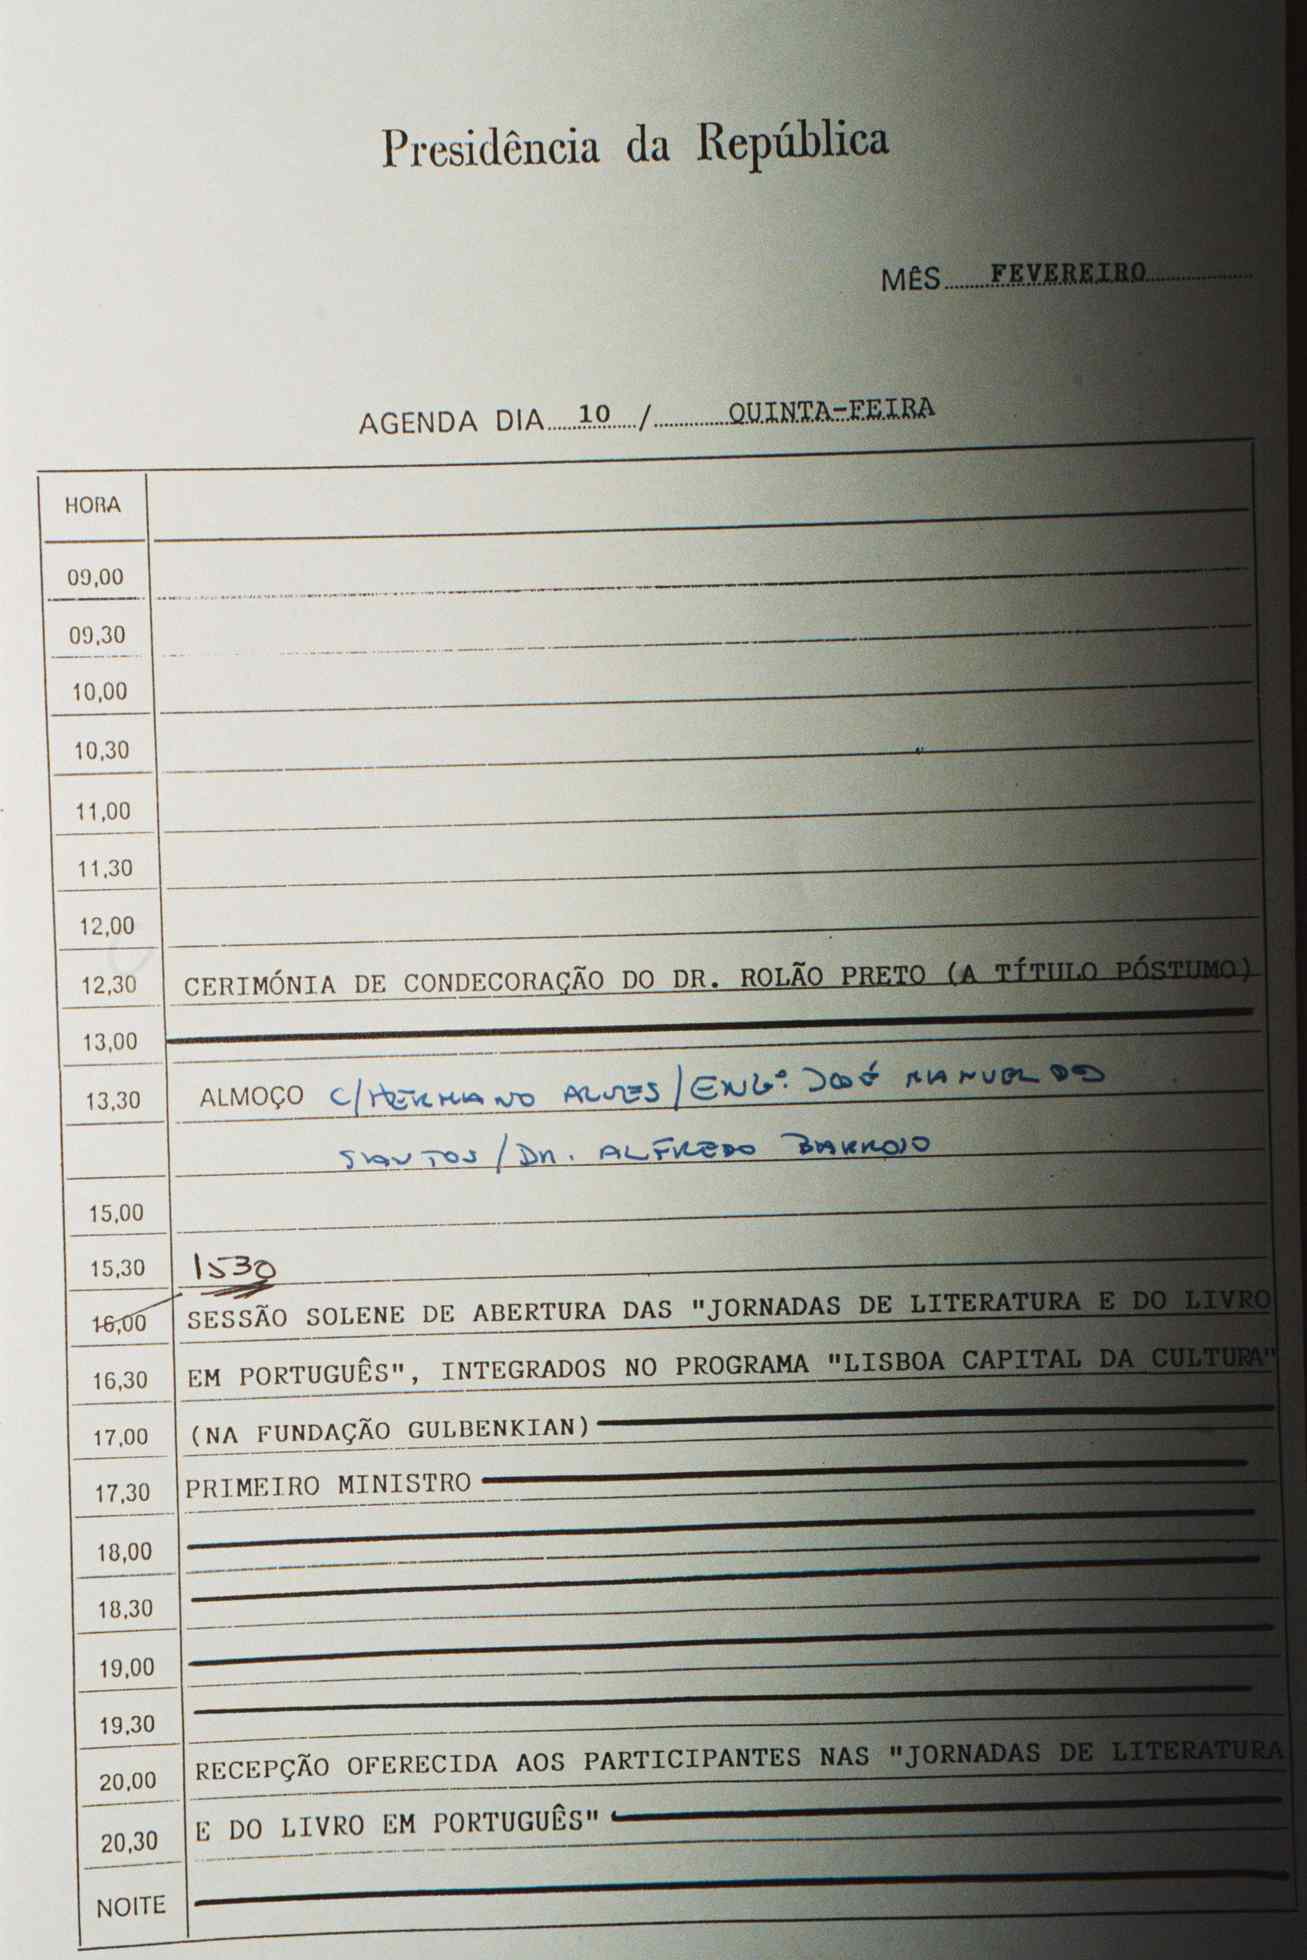 Presidência da República
MÊS FEVEREIRO
AGENDA DIA 10 / QUINTA-FEIRA
HORA
09,00
09,30
10,00
10,30
11,00
11,30
12,00
12,30 CERIMÓNIA DE CONDECORAÇÃO DO DR. ROLÃO PRETO (A TÍTULO PÓSTUMO)
13,00
13,30 ALMOÇO C/HERMANO ALVES/ENGº. JOSÉ MANUEL DOS
SANTOS/DR. ALFREDO BARROSO
15,00
15,30 1530
16,00 SESSÃO SOLENE DE ABERTURA DAS "JORNADAS DE LITERATURA E DO LIVRO
16,30 EM PORTUGUÊS", INTEGRADOS NO PROGRAMA "LISBOA CAPITAL DA CULTURA"
17,00 (NA FUNDAÇÃO GULBENKIAN)
17,30 PRIMEIRO MINISTRO
18,00
18,30
19,00
19,30
20,00 RECEPÇÃO OFERECIDA AOS PARTICIPANTES NAS "JORNADAS DE LITERATURA
20,30 E DO LIVRO EM PORTUGUÊS"
NOITE